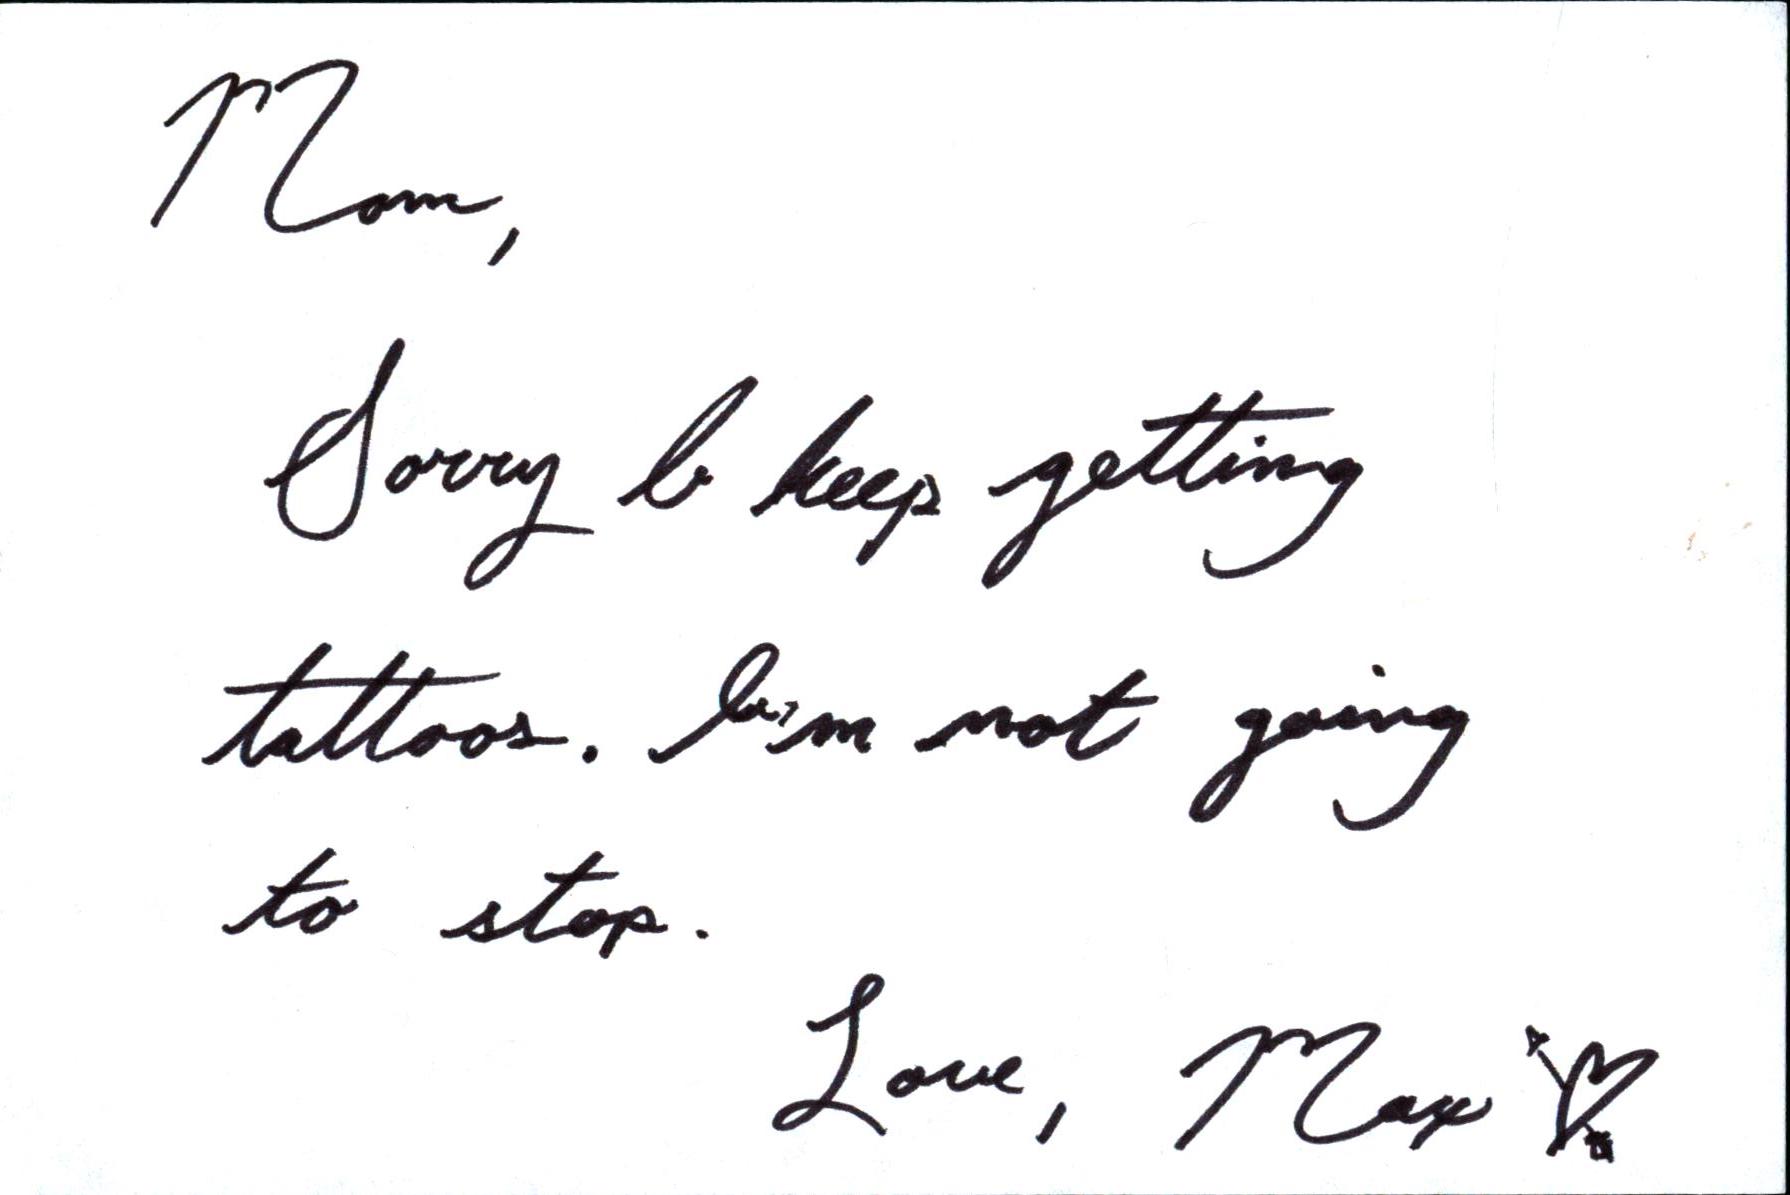 Mom,
Sorry I keep getting
tattoos. I'm not going
to stop.
Love, Max